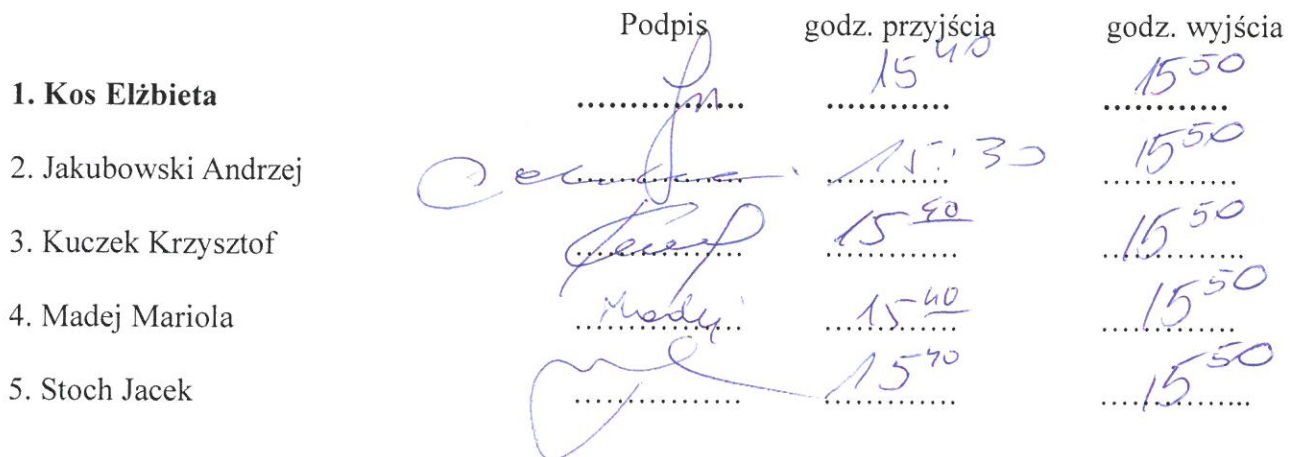 Podpis godz. przyjścia godz. wyjścia
1. Kos Elżbieta 15 40 15 50
2. Jakubowski Andrzej 15:30 15 50
3. Kuczek Krzysztof 15 40 15 50
4. Madej Mariola Madej 15 40 15 50
5. Stoch Jacek 15 40 15 50